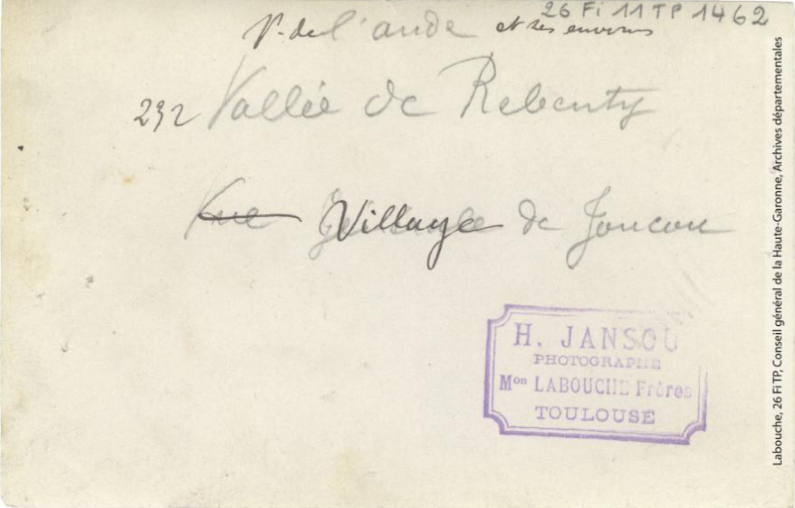 26 Fi 11 TP 1462
Vte de l'aude et ses environs
232 Vallée de Rebenty
Vue Village de Joucou
H. JANSOU
PHOTOGRAPHE
Mon LABOUCHE Frères
TOULOUSE
Labouche, 26 Fi TP, Conseil général de la Haute-Garonne, Archives départementales